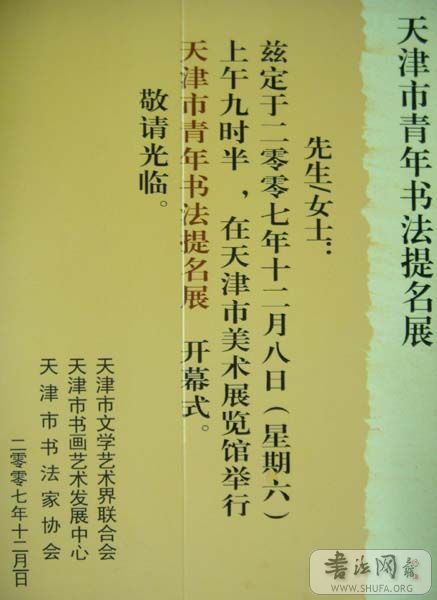 天津市青年书法提名展
先生/女士：
兹定于二零零七年十二月八日（星期六）
上午九时半，在天津市美术展览馆举行
天津市青年书法提名展 开幕式。
敬请光临。
天津市文学艺术界联合会
天津市书画艺术发展中心
天津市书法家协会
二零零七年十二月一日
书法网
WWW.SHUFA.ORG